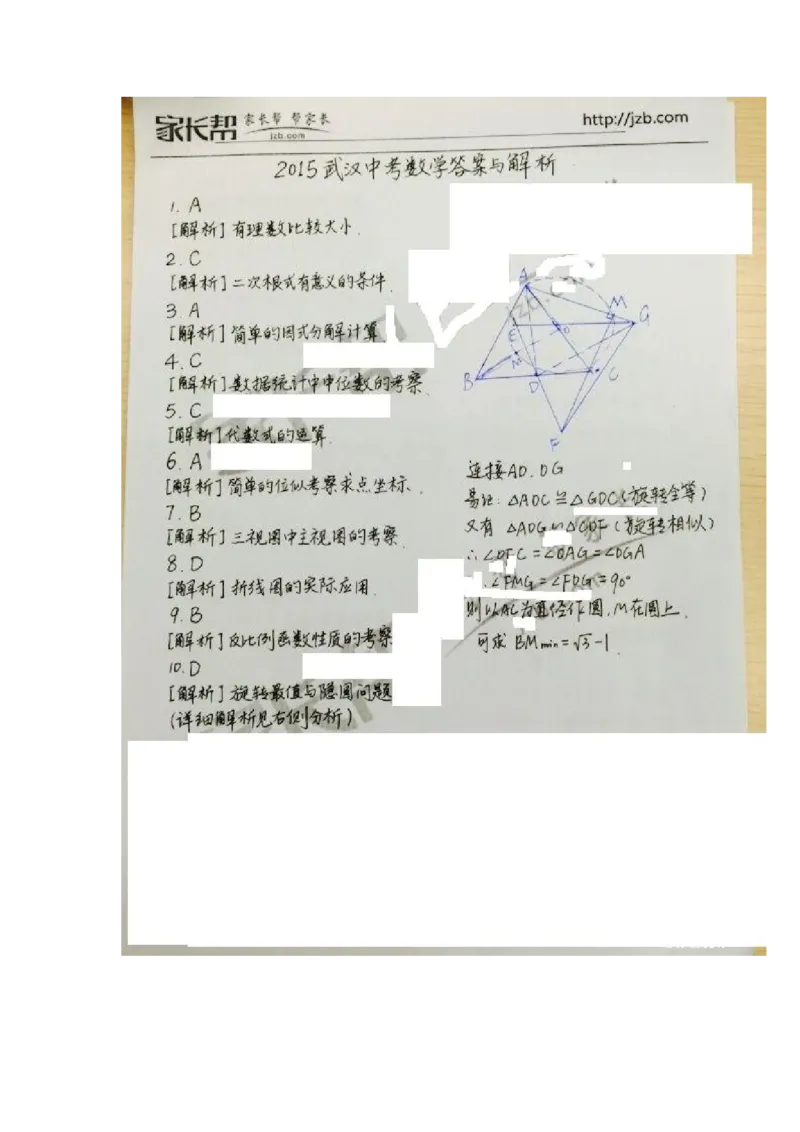 家长帮 家长帮 帮家长
jzb.com
http://jzb.com
2015武汉中考数学答案与解析
1. A
[解析] 有理数比较大小.
2. C
[解析] 二次根式有意义的条件.
3. A
[解析] 简单的因式分解计算.
4. C
[解析] 数据统计中中位数的考察.
5. C
[解析] 代数式的运算.
6. A
[解析] 简单的位似考察求点坐标.
7. B
[解析] 三视图中主视图的考察.
8. D
[解析] 折线图的实际应用.
9. B
[解析] 反比例函数性质的考察
10. D
[解析] 旋转最值与隐圆问题
(详细解析见右侧分析)
A
M
G
E
O
M
B
D
C
F
连接AD. DG
易证: △ADC≌△GDC(旋转全等)
又有 △ADG∽△CDF (旋转相似)
∴∠DFC=∠DAG=∠DGA
∴∠FMG=∠FDG=90°
则以AC为直径作圆, M在圆上.
可求 BMmin=√3-1.